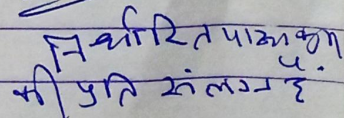 निर्धारित पाठ्यक्रम
की प्रति संलग्न है